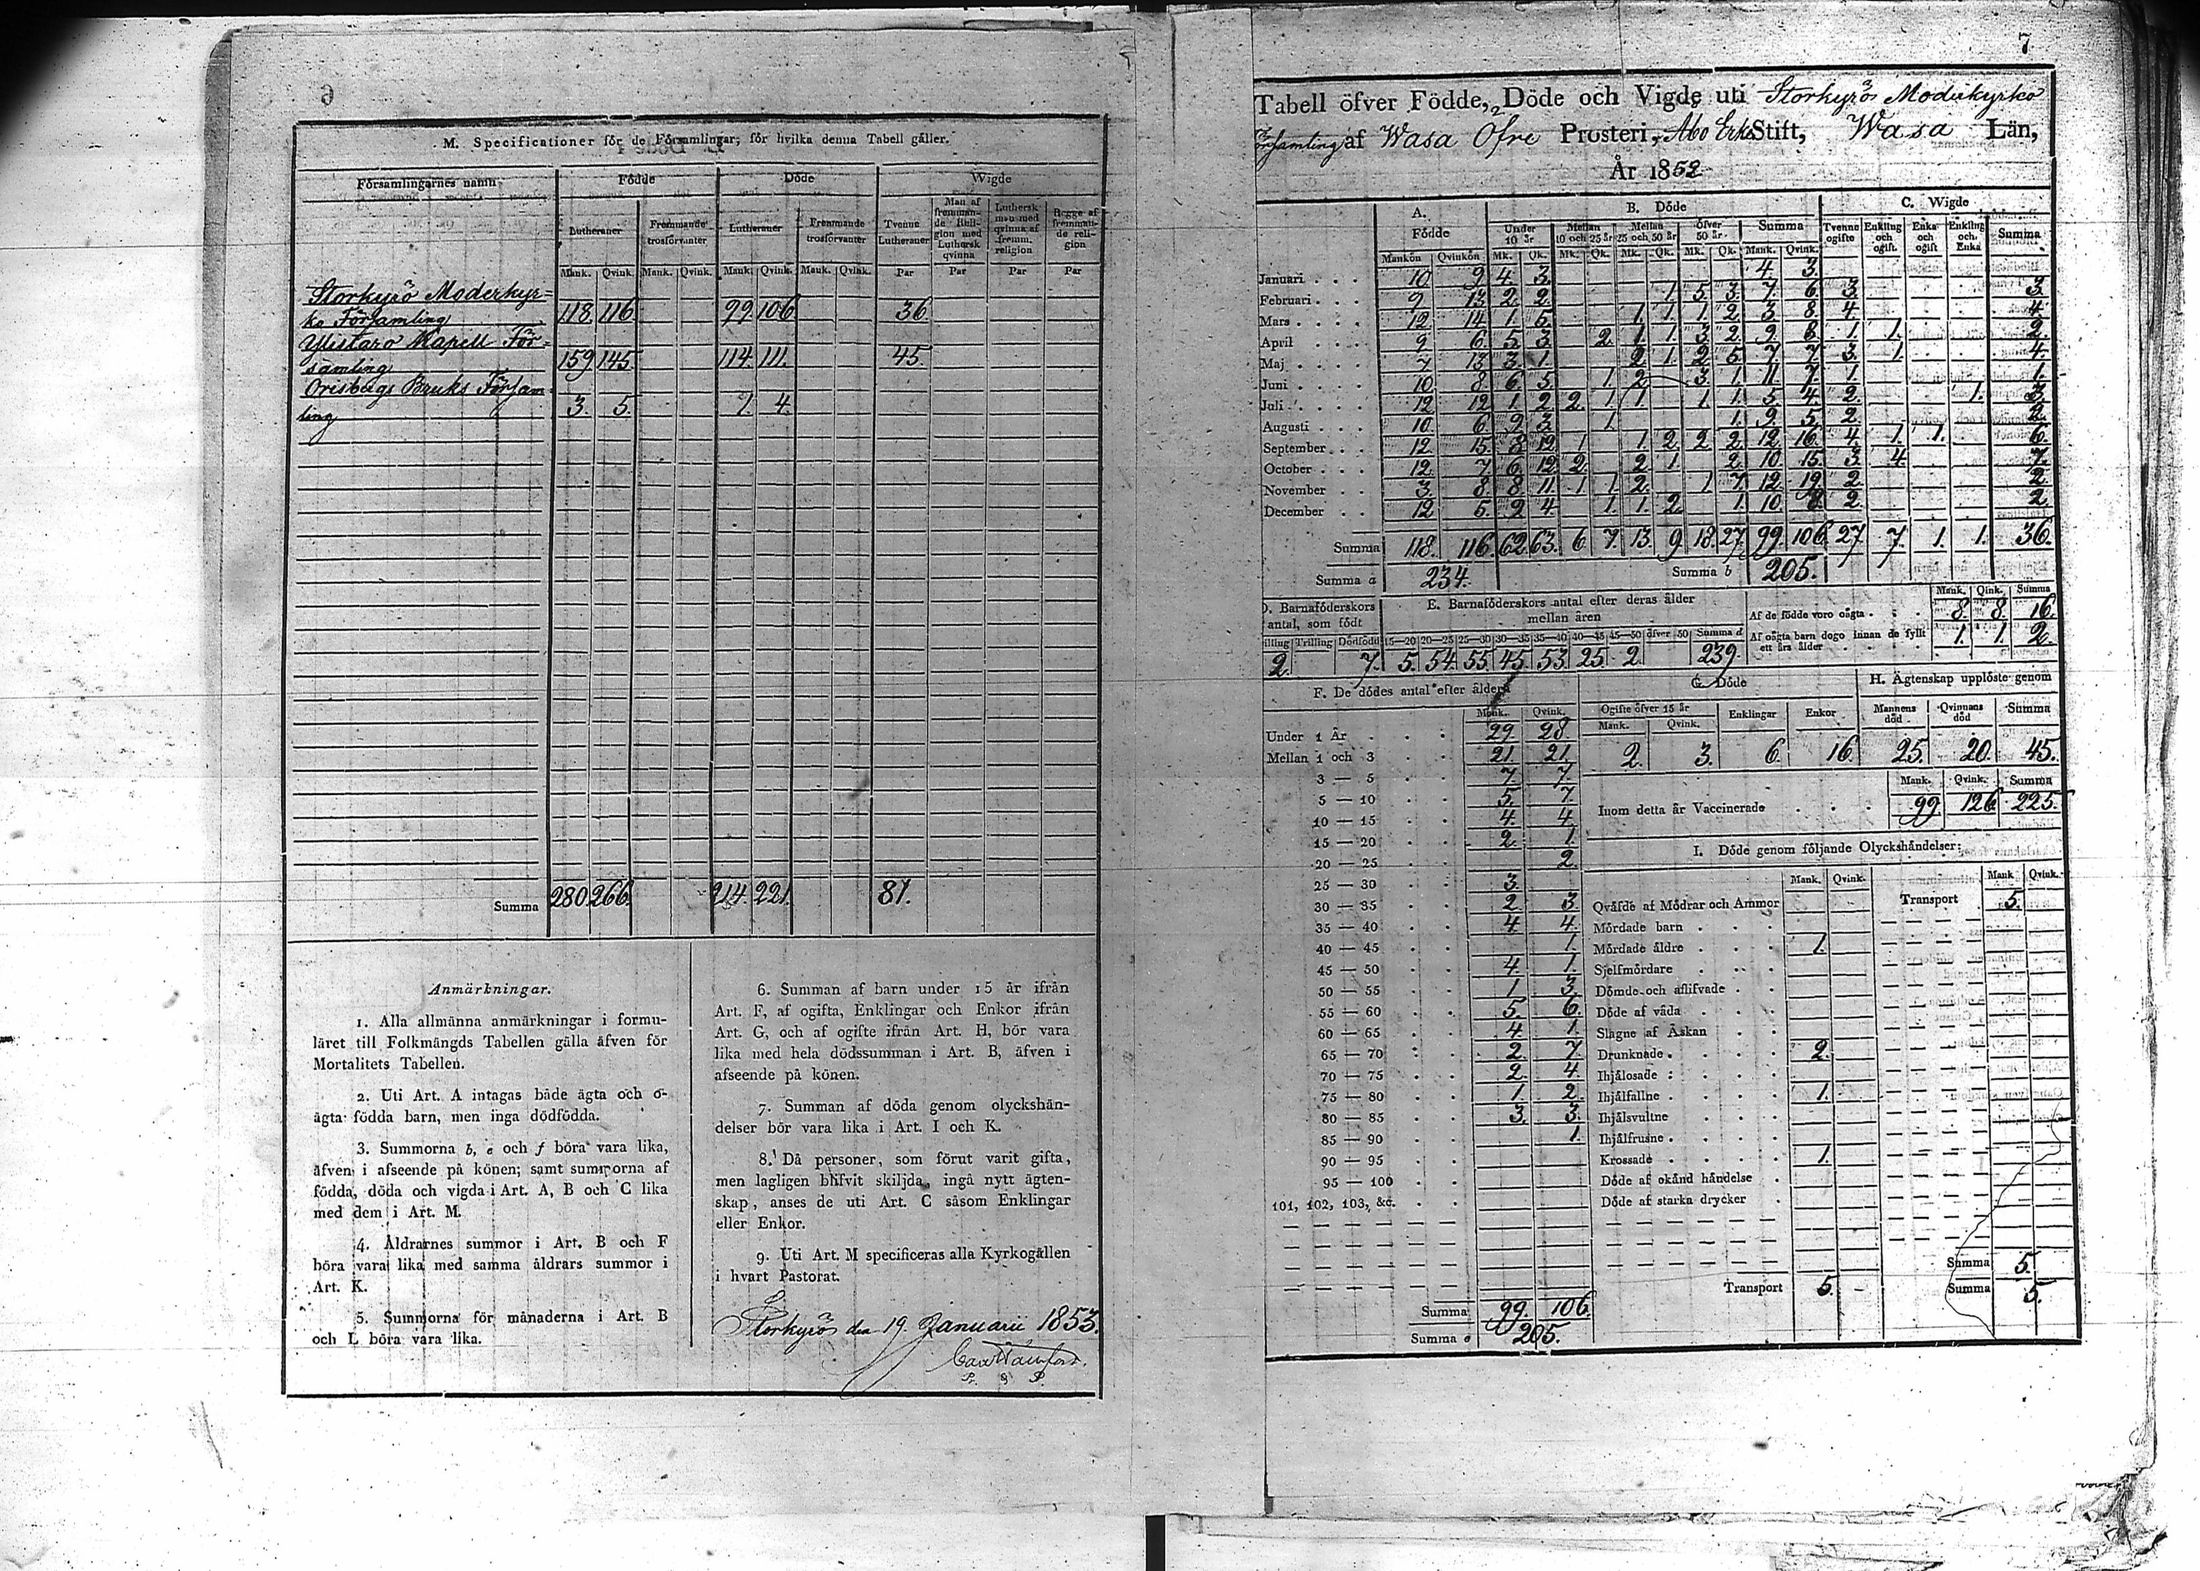 6
M. Specificationer för de Församlingar, för hvilka denna Tabell gäller.
Församlingarnes namn Födde Döde Wigde
Lutheraner Fremmande trosförvanter Lutheraner Fremmande trosförvanter Tvenne Lutheraner Man af fremmande Religion med Luthersk qvinna Luthersk man med qvinna af fremm. religion Begge af fremmande religion
Mank. Qvink. Mank. Qvink. Mank. Qvink. Mank. Qvink. Par Par Par Par
Storkyrö Moderkyr=
ko Församling 118. 116. 99. 106. 36.
Ylistaro Kapell För=
samling 159 145. 114. 111. 45.
Orisbergs Bruks Försam=
ling 3. 5. 1. 4.
Summa 280. 266. 214. 221. 81.
Anmärkningar.
1. Alla allmänna anmärkningar i formu-
läret till Folkmängds Tabellen gälla äfven för
Mortalitets Tabellen.
2. Uti Art. A intagas både ägta och o-
ägta födda barn, men inga dödfödda.
3. Summorna b, e och f böra vara lika,
äfven i afseende på könen; samt summorna af
födda, döda och vigda i Art. A, B och C lika
med dem i Art. M.
4. Åldrarnes summor i Art. B och F
böra vara lika med samma åldrars summor i
Art. K.
5. Summorna för månaderna i Art. B
och L böra vara lika.
6. Summan af barn under 15 år ifrån
Art. F, af ogifta, Enklingar och Enkor ifrån
Art. G, och af ogifte ifrån Art. H, bör vara
lika med hela dödssumman i Art. B, äfven i
afseende på könen.
7. Summan af döda genom olyckshän-
delser bör vara lika i Art. I och K.
8. Då personer, som förut varit gifta,
men lagligen blifvit skiljda, ingå nytt ägten-
skap, anses de uti Art. C såsom Enklingar
eller Enkor.
9. Uti Art. M specificeras alla Kyrkogällen
i hvart Pastorat.
Storkyrö den 19. Januarii 1853.
7
Tabell öfver Födde, Döde och Vigde uti Storkyrös Moderkyrko
Församling af Wasa Öfre Prosteri, Åbo Erke Stift, Wasa Län,
År 1852
A. Födde B. Döde C. Wigde
Under 10 år Mellan 10 och 25 år Mellan 25 och 50 år öfver 50 år Summa Tvenne ogifte Enkling och ogift. Enka och ogift Enkling och Enka Summa
Mankön Qvinkön Mk. Qk. Mk. Qk. Mk. Qk. Mk. Qk. Mank. Qvink.
Januari 10 9 4. 3. 4. 3.
Februari 9 13 2. 2. 1. 5. 3. 7. 6. 3. 3.
Mars 12 14 1. 5. 1. 1. 1. 2. 3 8 4. 4.
April 9 6. 5. 3. 2. 1. 1. 3. 2. 9 8 1. 1. 2.
Maj 7 13 3. 1. 2. 1. 2. 5. 7. 7. 3. 1. 4.
Juni 10 8 6. 5. 1. 2. 3. 1. 11. 7. 1. 1.
Juli 12 12 1. 2. 2. 1. 1. 1. 1. 5. 4. 2. 1. 3.
Augusti 10 6. 9. 3. 1. 1. 9. 5. 2. 2.
September 12 15. 8. 12. 1. 1. 2. 2. 2. 12. 16. 4. 1. 1. 6.
October 12 7. 6. 12. 2. 2. 1. 2. 10. 15. 3. 4. 7.
November 3. 8. 8. 11. 1. 1. 2. 1. 7. 12. 19. 2. 2.
December 12 5. 9. 4. 1. 1. 2. 1. 10. 8. 2. 2.
Summa 118. 116. 62. 63. 6. 7. 13. 9. 18. 27. 99. 106. 27. 7. 1. 1. 36.
Summa a 234. Summa b 205.
D. Barnaföderskors antal, som födt
Tvilling Trilling Dödfödd
2. 7.
E. Barnaföderskors antal efter deras ålder
mellan åren
15—20 20—25 25—30 30—35 35—40 40—45 45—50 öfver 50 Summa d
5. 54. 55. 45. 53. 25. 2. 239.
Mank. Qink. Summa
Af de födde voro oägta 8. 8. 16.
Af oägta barn dogo innan de fyllt
ett års ålder 1. 1. 2.
F. De dödes antal efter ålder
Mank. Qvink.
Under 1 År 29 28.
Mellan 1 och 3 21. 21.
3 — 5 7 7.
5 — 10 5. 7.
10 — 15 4. 4
15 — 20 2. 1.
20 — 25 2.
25 — 30 3.
30 — 35 2. 3.
35 — 40 4 4.
40 — 45 1.
45 — 50 4. 1.
50 — 55 1 3.
55 — 60 5. 6.
60 — 65 4. 1.
65 — 70 2. 7.
70 — 75 2. 4.
75 — 80 1 2.
80 — 85 3. 3.
85 — 90 1.
90 — 95
95 — 100
101, 102, 103, &c.
Summa 99. 106.
Summa e 205.
G. Döde
Ogifte öfver 15 år Enklingar Enkor
Mank. Qvink.
2. 3. 6. 16.
H. Ägtenskap upplöste genom
Mannens död Qvinnans död Summa
25. 20. 45.
Mank. Qvink. Summa
Inom detta år Vaccinerade 99. 126. 225.
I. Döde genom följande Olyckshändelser:
Mank. Qvink. Mank. Qvink.
Qväfde af Mödrar och Ammor Transport 5.
Mördade barn
Mördade äldre 1.
Sjelfmördare
Dömde och aflifvade
Döde af våda
Slagne af Åskan
Drunknade 2.
Ihjälosade
Ihjälfallne 1.
Ihjälsvultne
Ihjälfrusne
Krossade 1.
Döde af okänd händelse
Döde af starka drycker
Summa 5.
Transport 5. Summa 5.